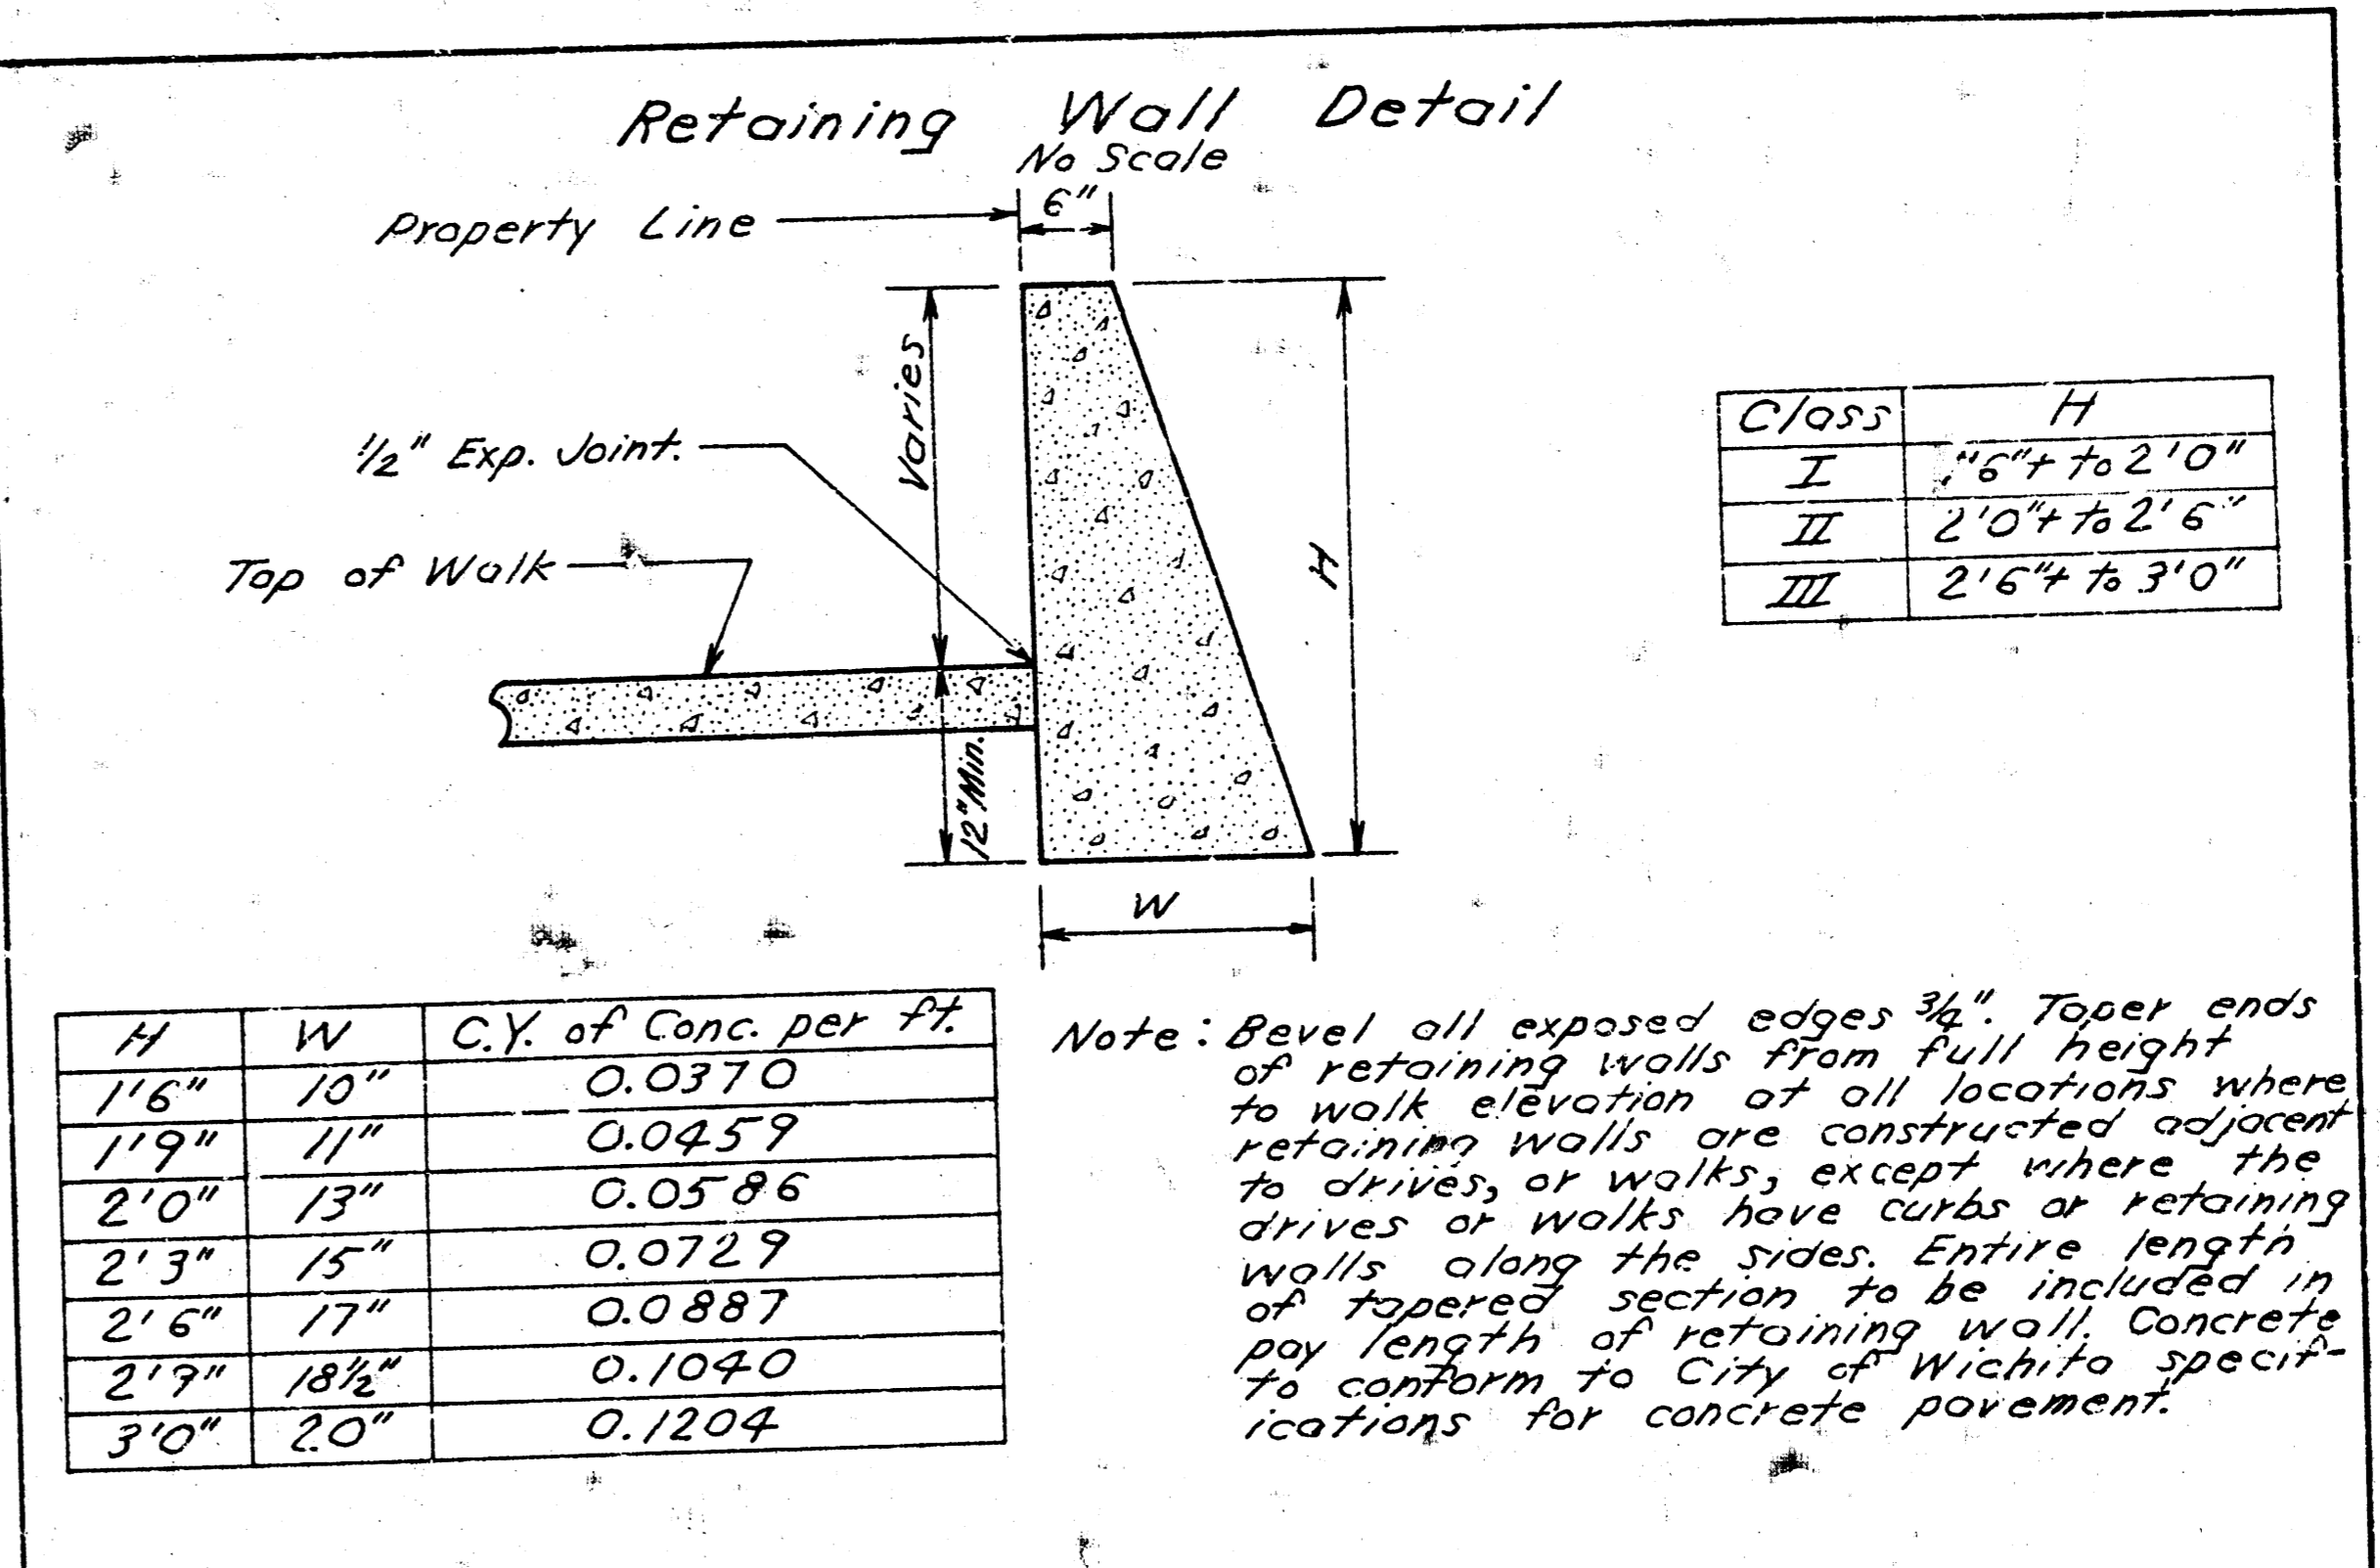 Retaining Wall Detail
No Scale
6"
Property Line
Varies
1/2" Exp. Joint.
Top of Walk
H
12" Min.
W
Class H
I 6"+ to 2'0"
II 2'0"+ to 2'6"
III 2'6"+ to 3'0"
H W C.Y. of Conc. per ft.
1'6" 10" 0.0370
1'9" 11" 0.0459
2'0" 13" 0.0586
2'3" 15" 0.0729
2'6" 17" 0.0887
2'9" 18 1/2" 0.1040
3'0" 20" 0.1204
Note: Bevel all exposed edges 3/4". Taper ends
of retaining walls from full height
to walk elevation at all locations where
retaining walls are constructed adjacent
to drives, or walks, except where the
drives or walks have curbs or retaining
walls along the sides. Entire length
of tapered section to be included in
pay length of retaining wall. Concrete
to conform to City of Wichita specif-
ications for concrete pavement.